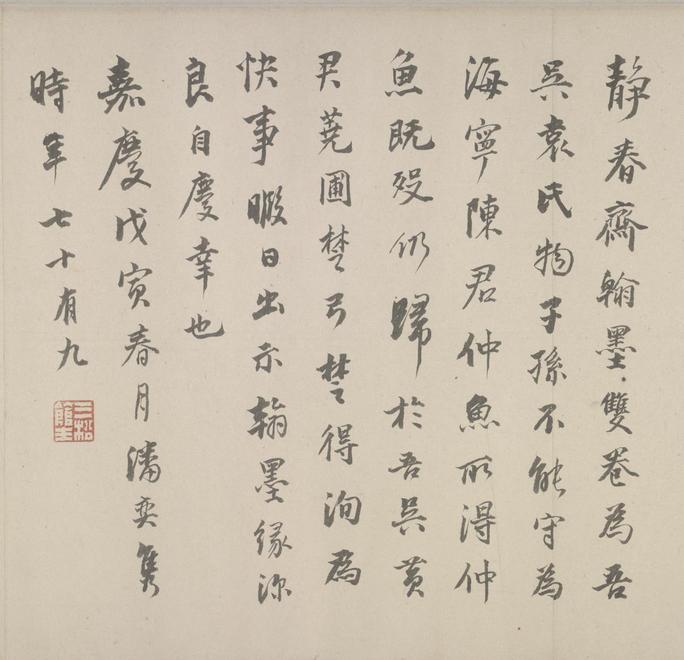 静春齋翰墨雙卷為吾
吳袁氏物子孫不能守為
海寧陳君仲魚所得仲
魚既歿仍歸於吾吳黃
君蕘圃楚弓楚得洵為
快事暇日出示翰墨緣深
良自慶幸也
嘉慶戊寅春月潘奕雋
時年七十有九
三松
館主